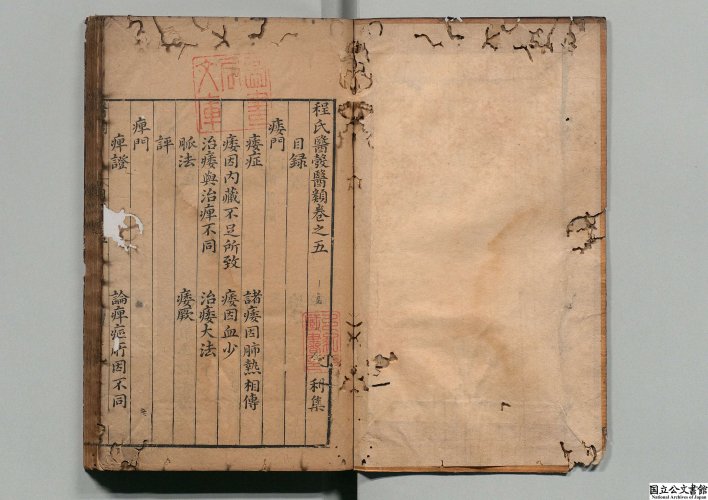 程氏醫彀醫類卷之五
利集
目錄
痿門
痿症
諸痿因肺熱相傳
痿因內藏不足所致
痿因血少
治痿與治痺不同
治痿大法
脈法
痿厥
評
痺門
痺證
論痺所因不同
国立公文書館
National Archives of Japan